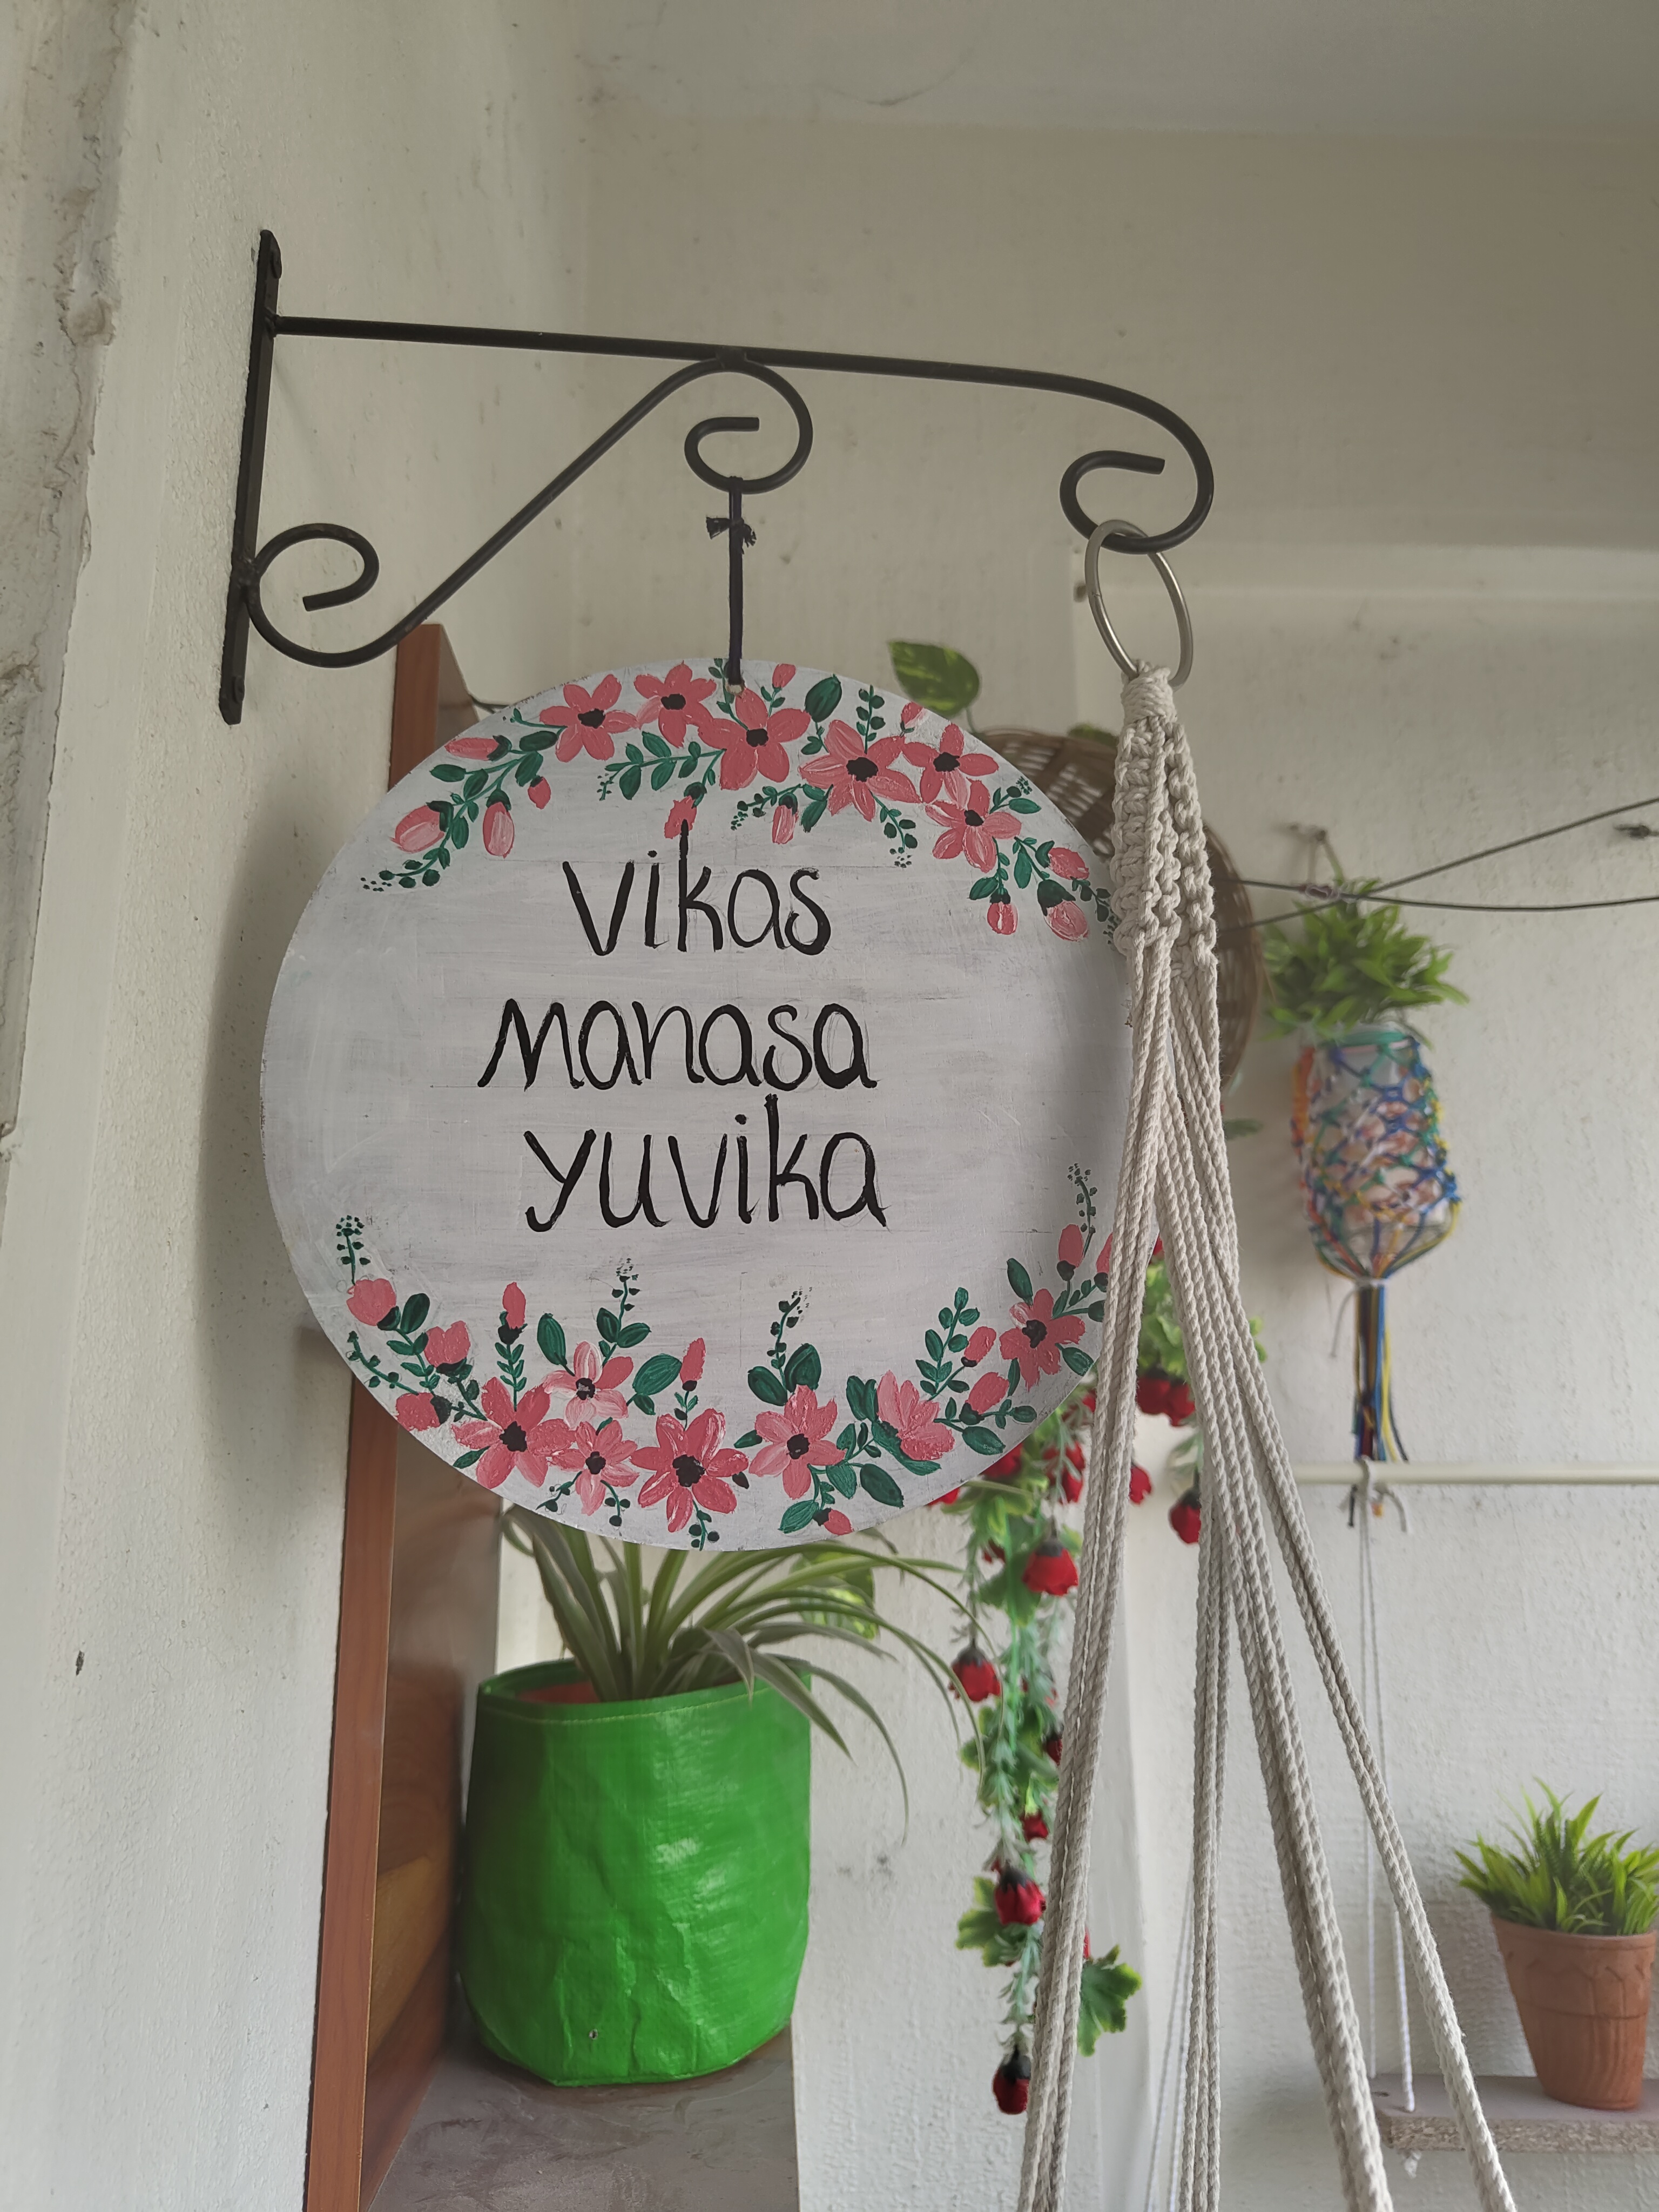 Vikas
Manasa
Yuvika